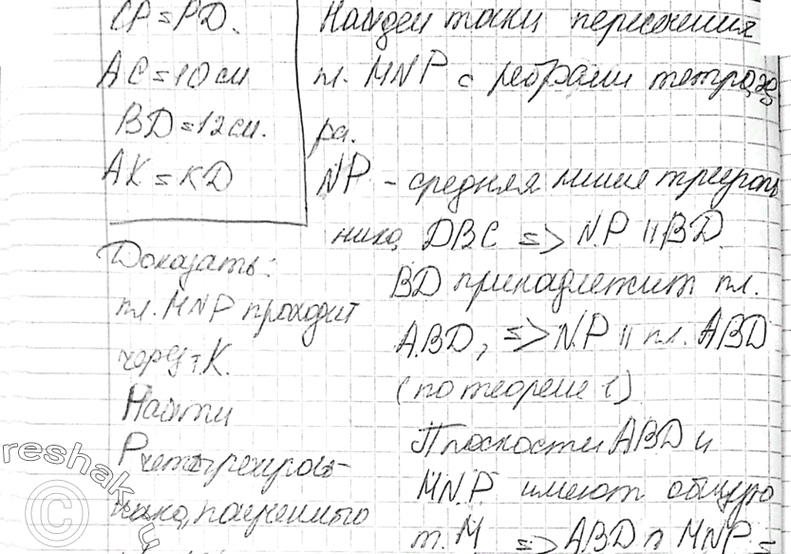 CP = PD.
AC = 10 см
BD = 12 см.
AK = KD
Доказать:
пл. MNP проходит
через т. K.
Найти
P четырехуголь-
ника, полученного
Найдем точки пересечения
пл. MNP с ребрами тетраэд
ра.
NP - средняя линия треуголь
ника DBC => NP || BD
BD принадлежит пл.
ABD, => NP || пл. ABD
(по теореме 1)
Плоскости ABD и
MNP имеют общую
т. M => ABD ∩ MNP =
reshak.ru
©